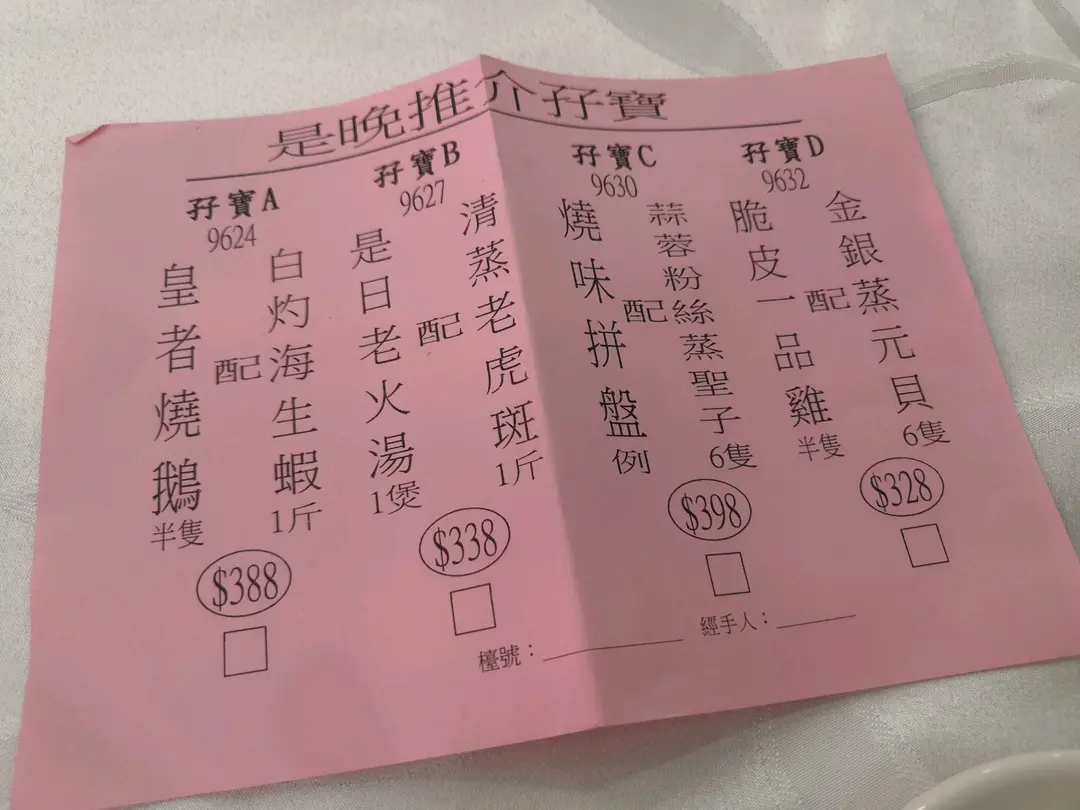 是晚推介孖寶
孖寶A
9624
皇者燒鵝半隻
配
白灼海生蝦1斤
$388
孖寶B
9627
是日老火湯1煲
配
清蒸老虎斑1斤
$338
孖寶C
9630
燒味拼盤例
配
蒜蓉粉絲蒸聖子6隻
$398
孖寶D
9632
脆皮一品雞半隻
配
金銀蒸元貝6隻
$328
檯號：
經手人：